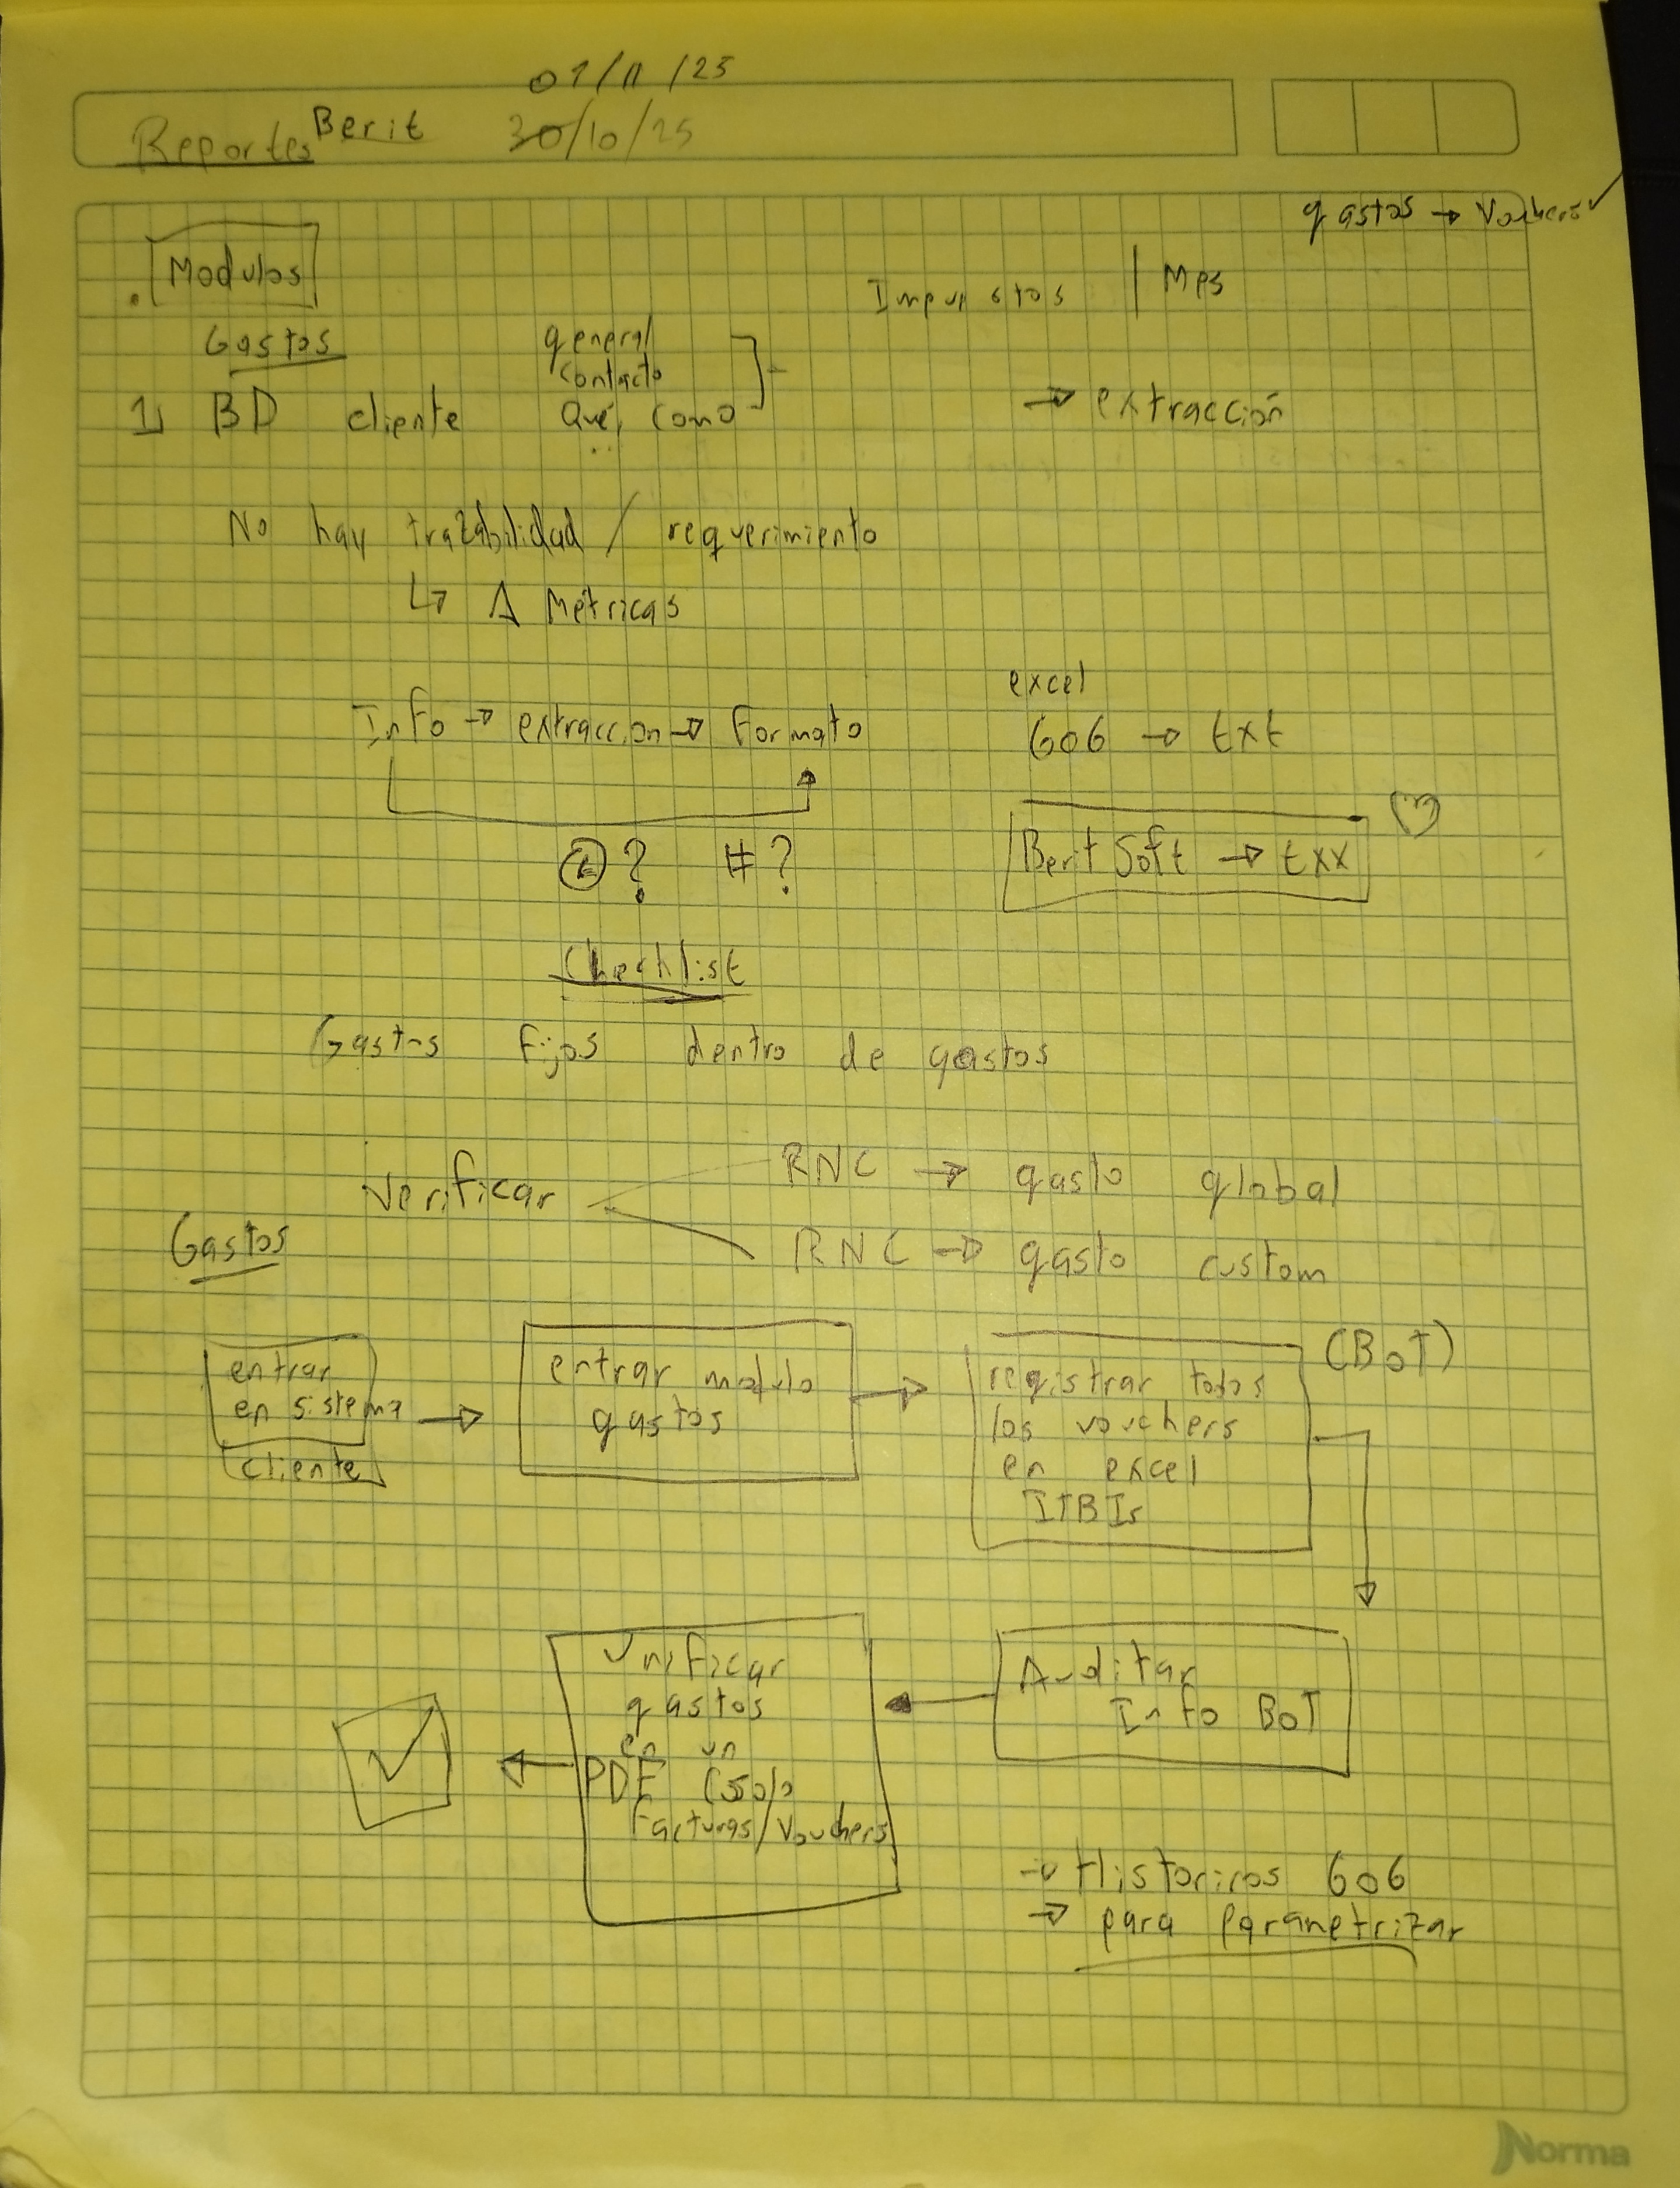 01/11/25
Reportes Berit 30/10/25
gastos → Vouchers ✓
Modulos
Impuestos | Mes
Gastos
general
contacto
1) BD cliente Qué, Como
→ extracción
No hay trazabilidad / requerimiento
↳ Δ Métricas
excel
Info → extraccion → Formato
606 → txt
Berit Soft → txx
? #?
Checklist
Gastos Fijos dentro de gastos
Verificar
RNC → gasto global
RNC → gasto custom
Gastos
entrar
en sistema
cliente
→
entrar modulo
gastos
→
registrar todos
los vouchers
en excel
ITBIs
(BOT)
Auditar
Info BOT
Unificar
gastos
en un
PDF (solo
Facturas/Vouchers
→ Historicos 606
→ para parametrizar
Norma